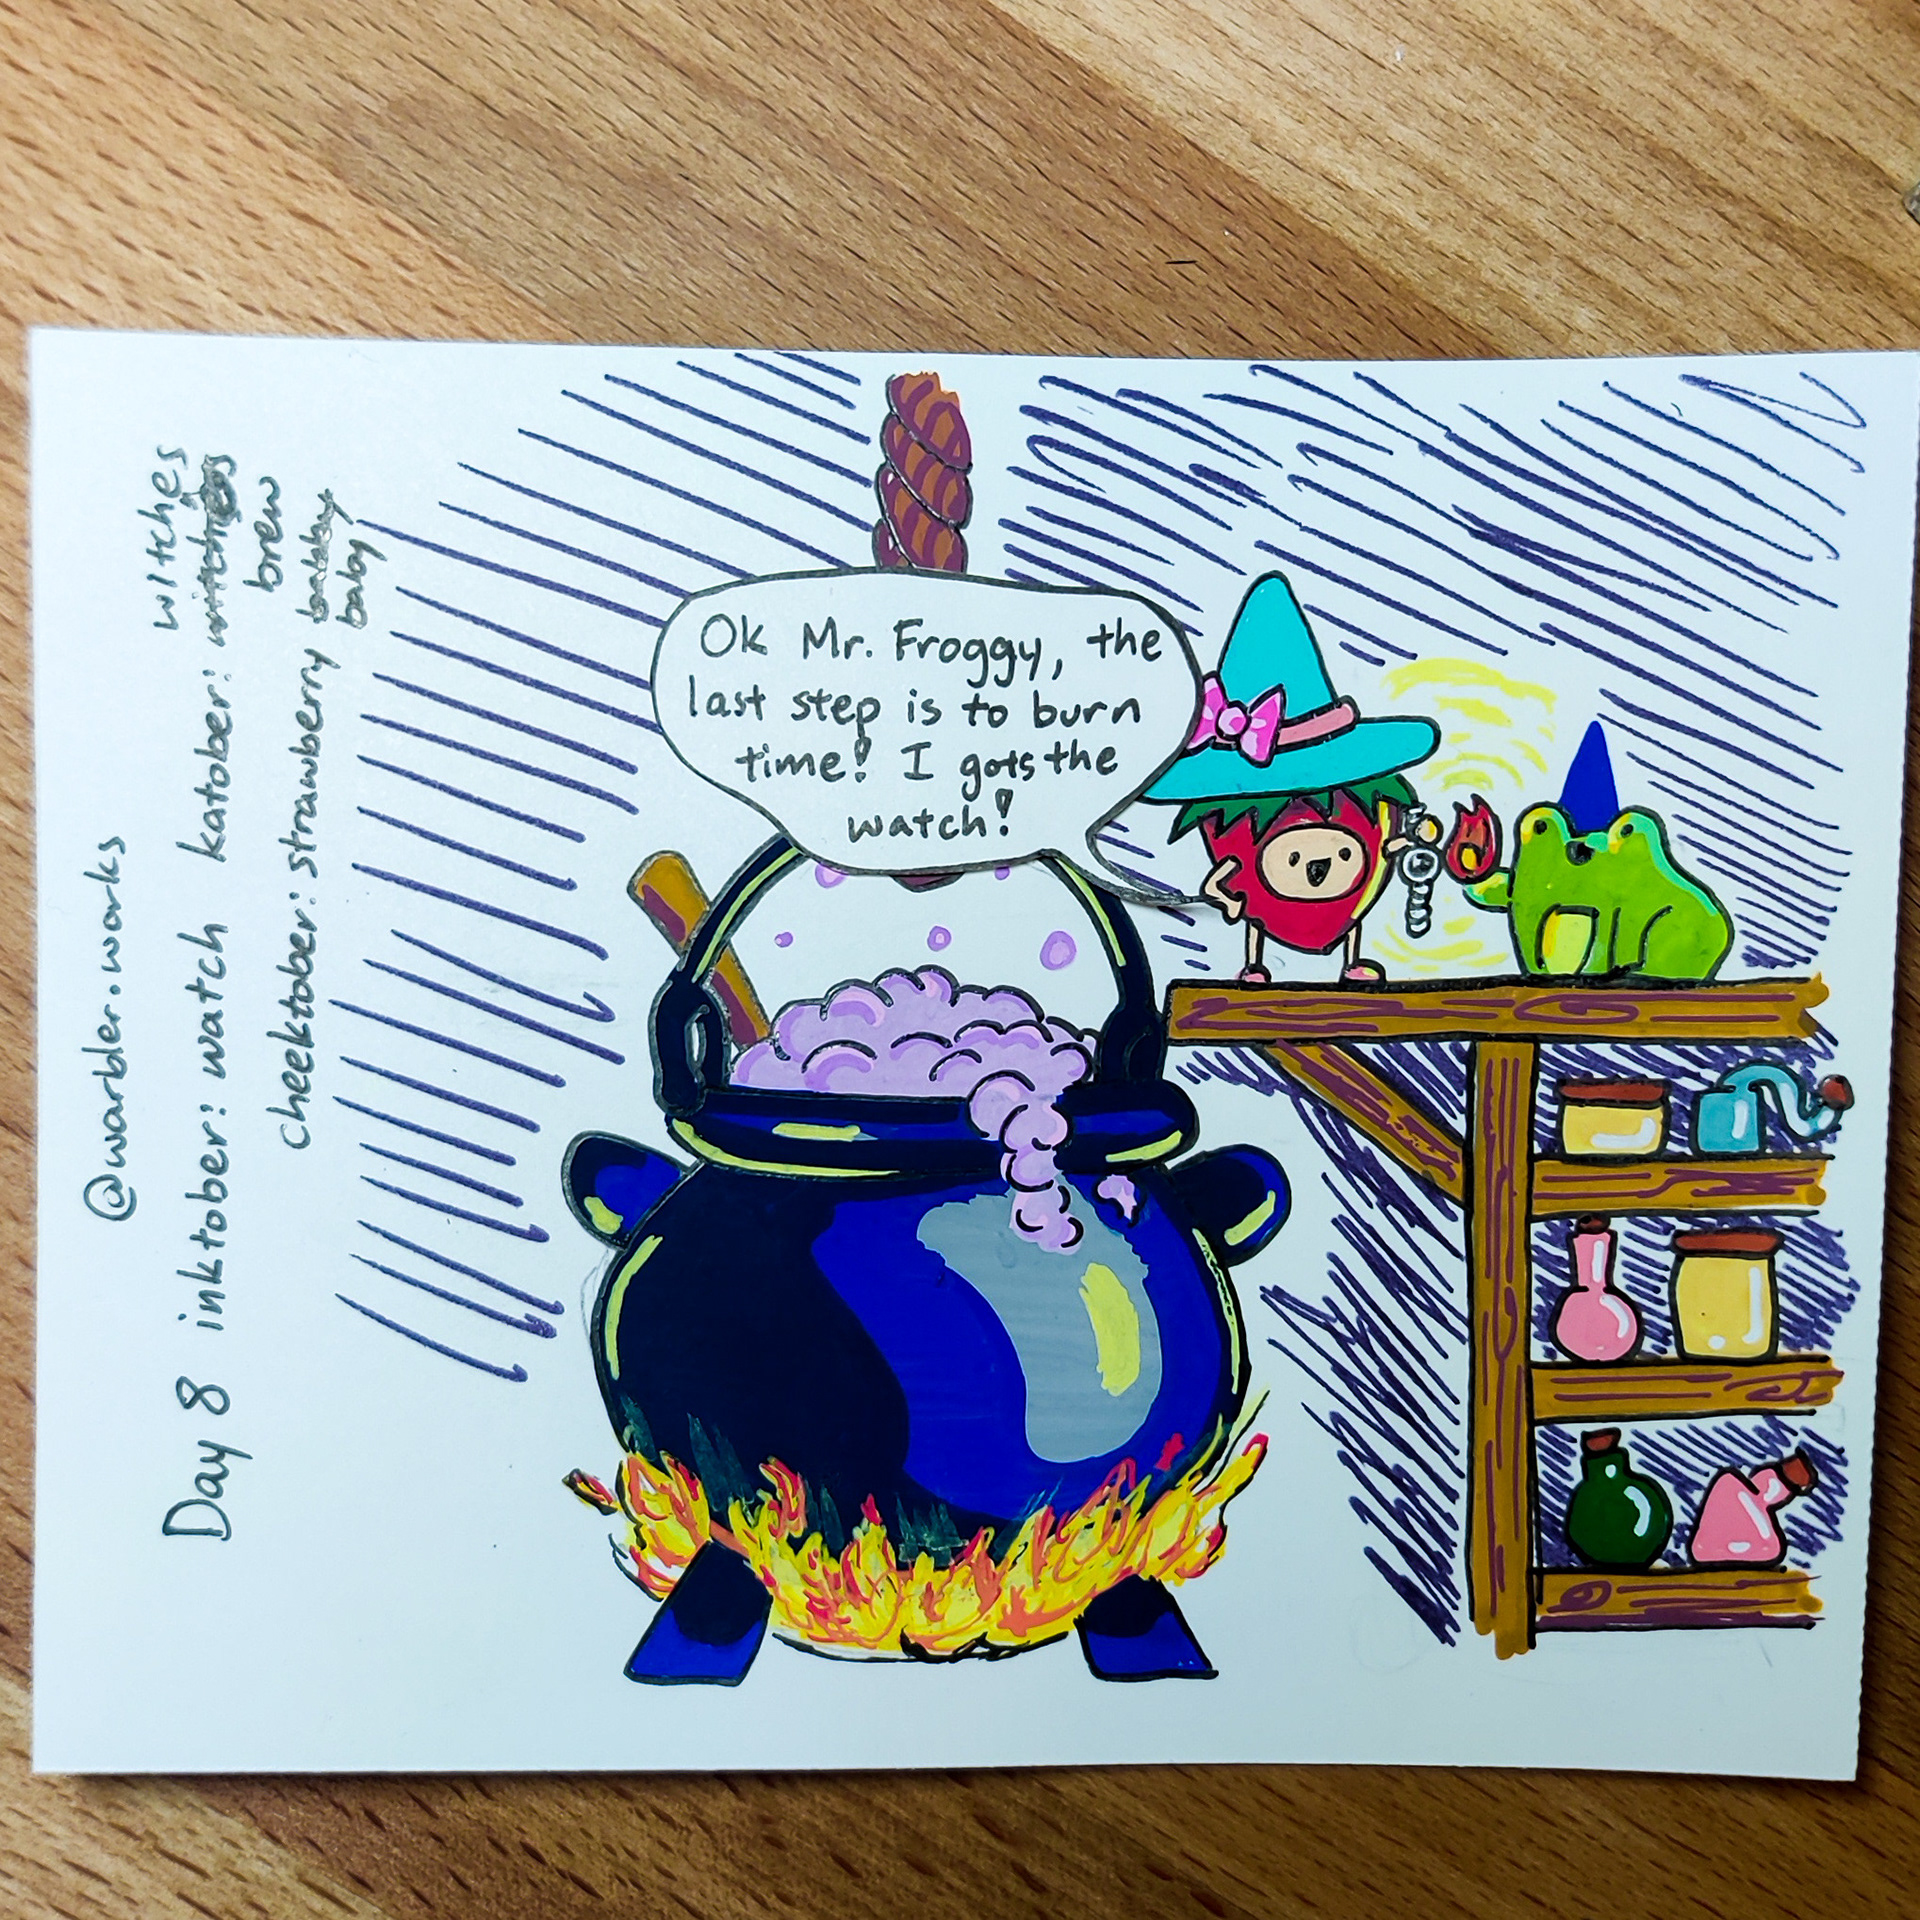 Ok Mr. Froggy, the
last step is to burn
time! I gots the
watch!
@warbler.works
Day 8 inktober: watch katober: witches
brew
cheektober: strawberry
baby